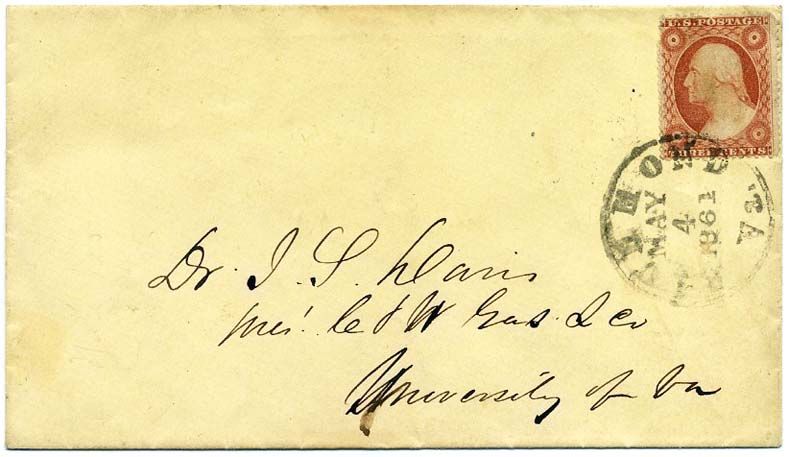 U.S. POSTAGE
THREE CENTS
MOND Va.
MAY
4
1861
Dr. J. S. Davis
Pres! C & W Gas L Co
University of Va